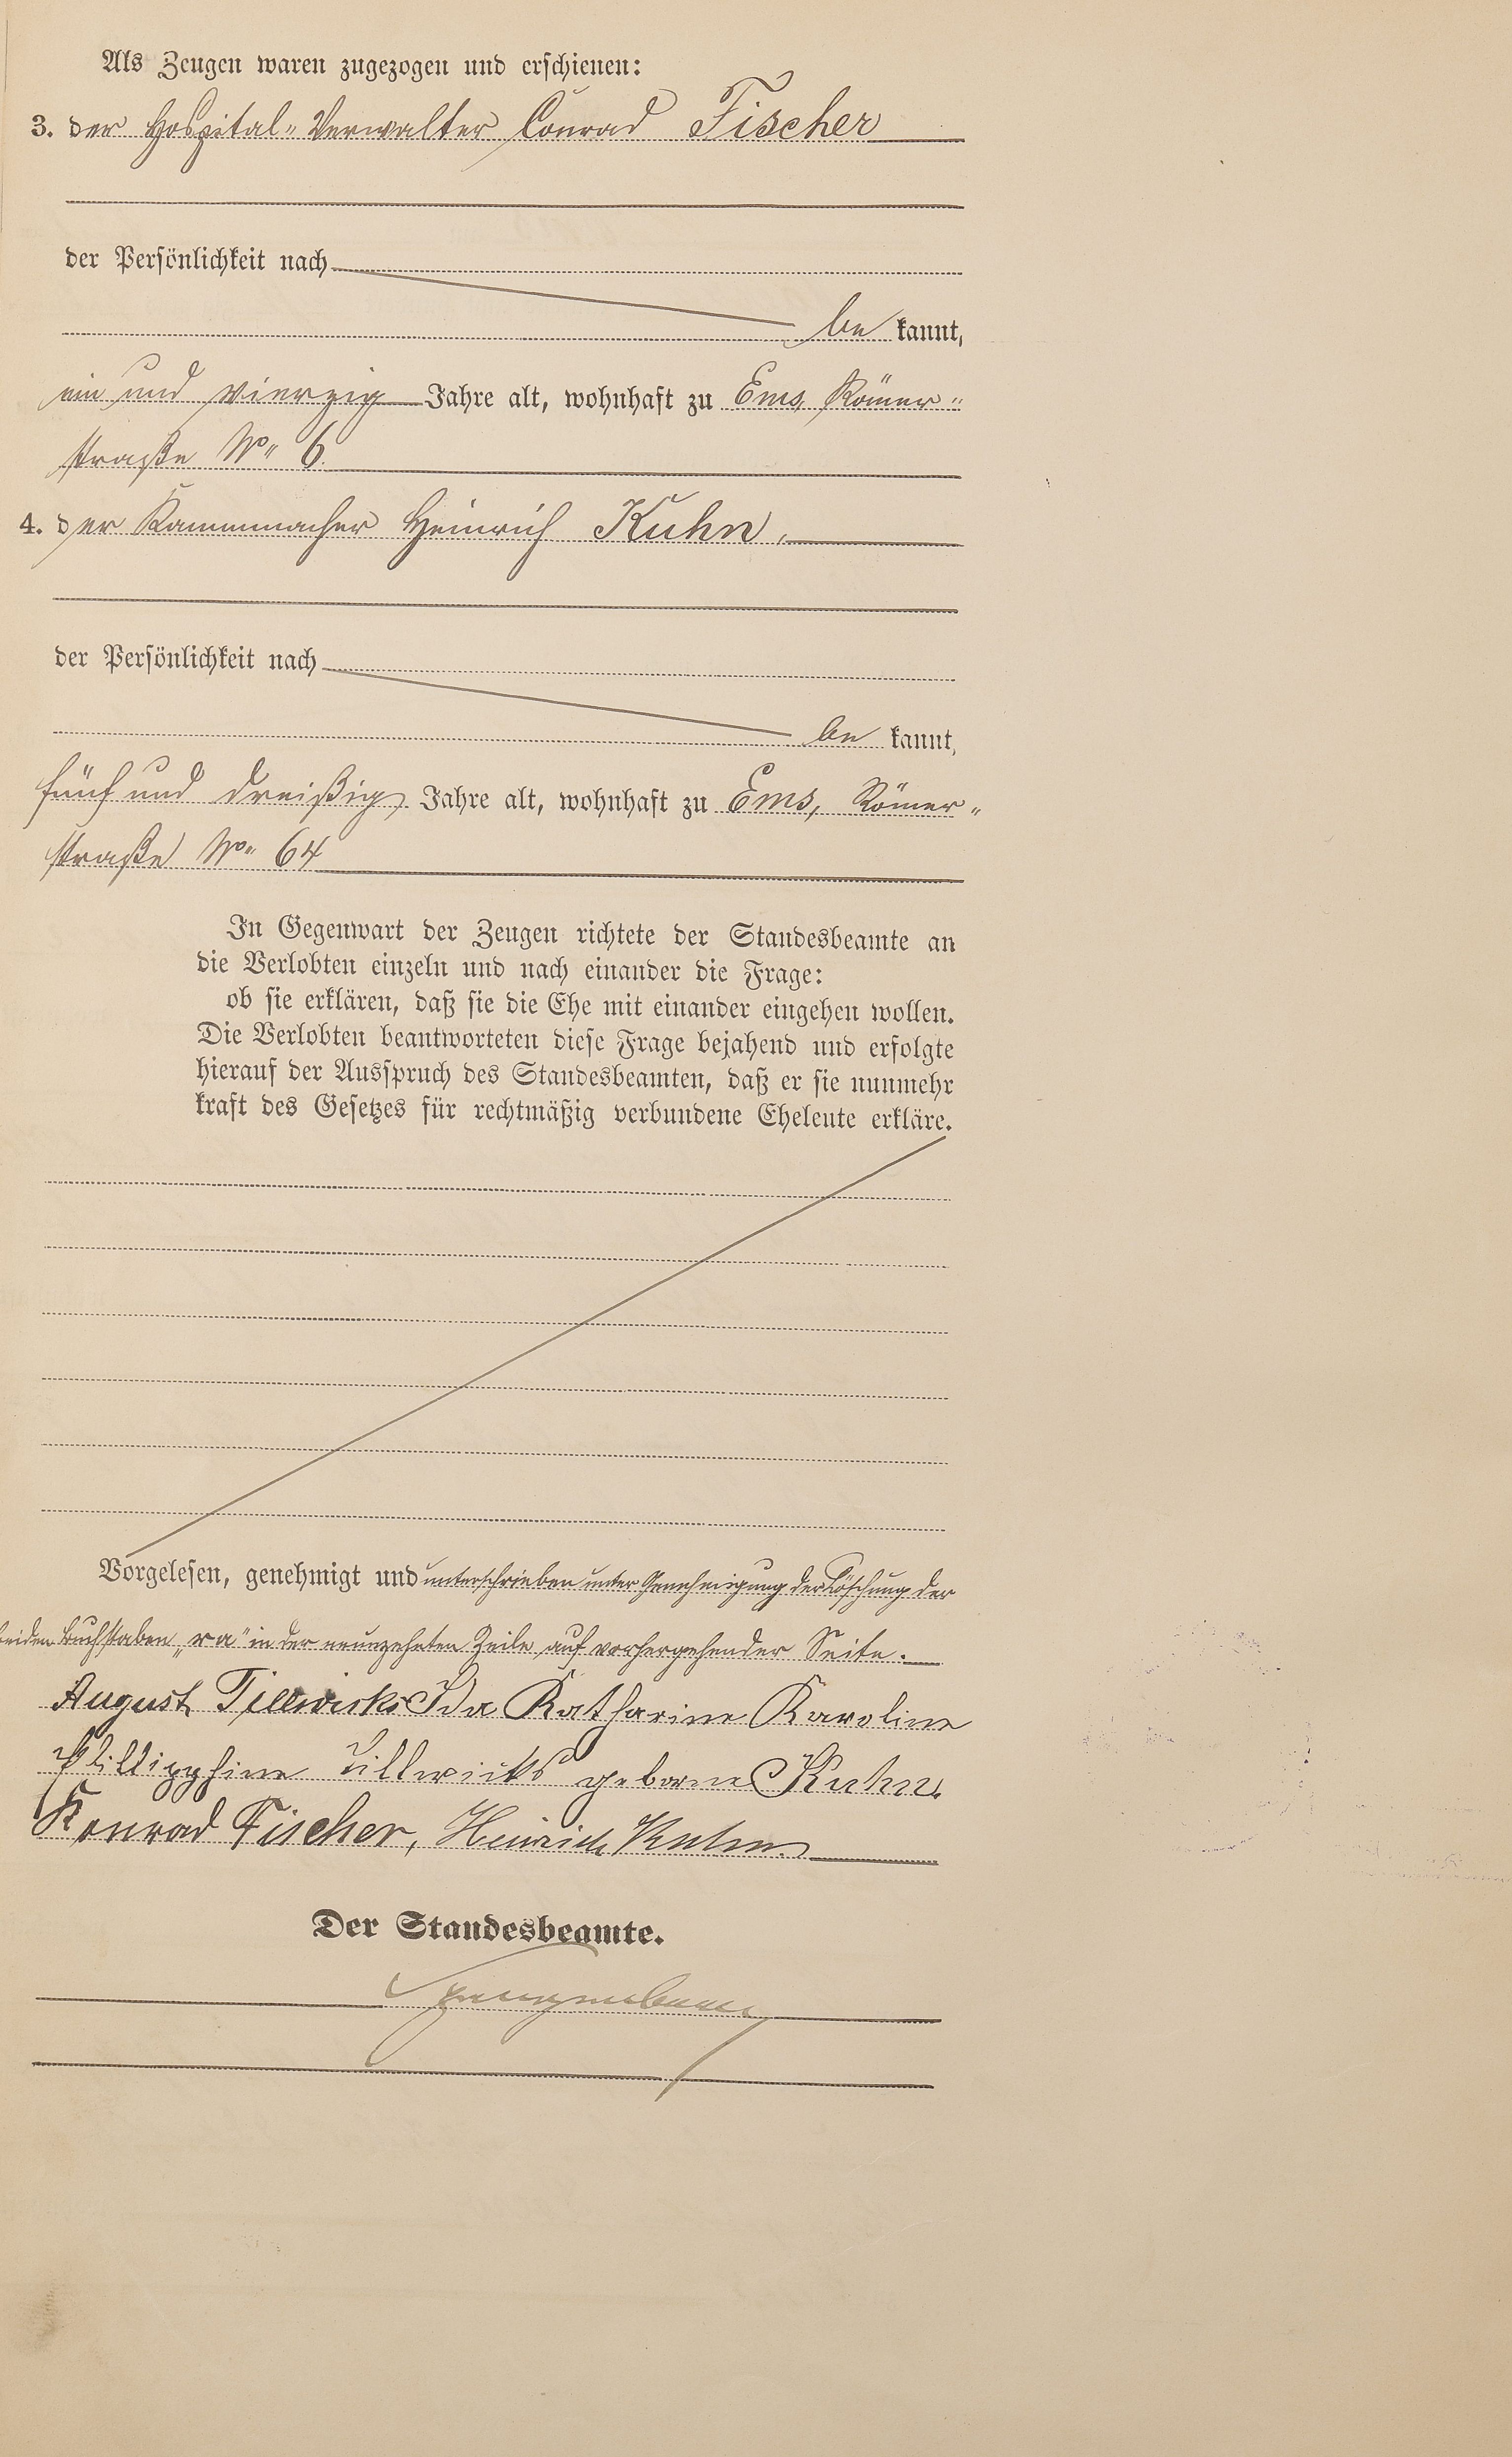 Als Zeugen waren zugezogen und erschienen:
3. der Hospital-Verwalter Conrad Fischer
der Persönlichkeit nach
be kannt,
ein und vierzig Jahre alt, wohnhaft zu Ems, Römer-
straße No 6.
4. der Kammmacher Heinrich Kuhn,
der Persönlichkeit nach
be kannt,
fünf und dreißig Jahre alt, wohnhaft zu Ems, Römer-
straße No 64
In Gegenwart der Zeugen richtete der Standesbeamte an
die Verlobten einzeln und nach einander die Frage:
ob sie erklären, daß sie die Ehe mit einander eingehen wollen.
Die Verlobten beantworteten diese Frage bejahend und erfolgte
hierauf der Ausspruch des Standesbeamten, daß er sie nunmehr
kraft des Gesetzes für rechtmäßig verbundene Eheleute erkläre.
Vorgelesen, genehmigt und unterschrieben unter Genehmigung der Löschung der
beiden Buchstaben „ra" in der neunzehnten Zeile auf vorhergehender Seite.
August Tillwicks Ida Katharine Karoline
Phillipphine Tillwicks geborne Kuhn.
Konrad Fischer, Heinrich Kuhn.
Der Standesbeamte.